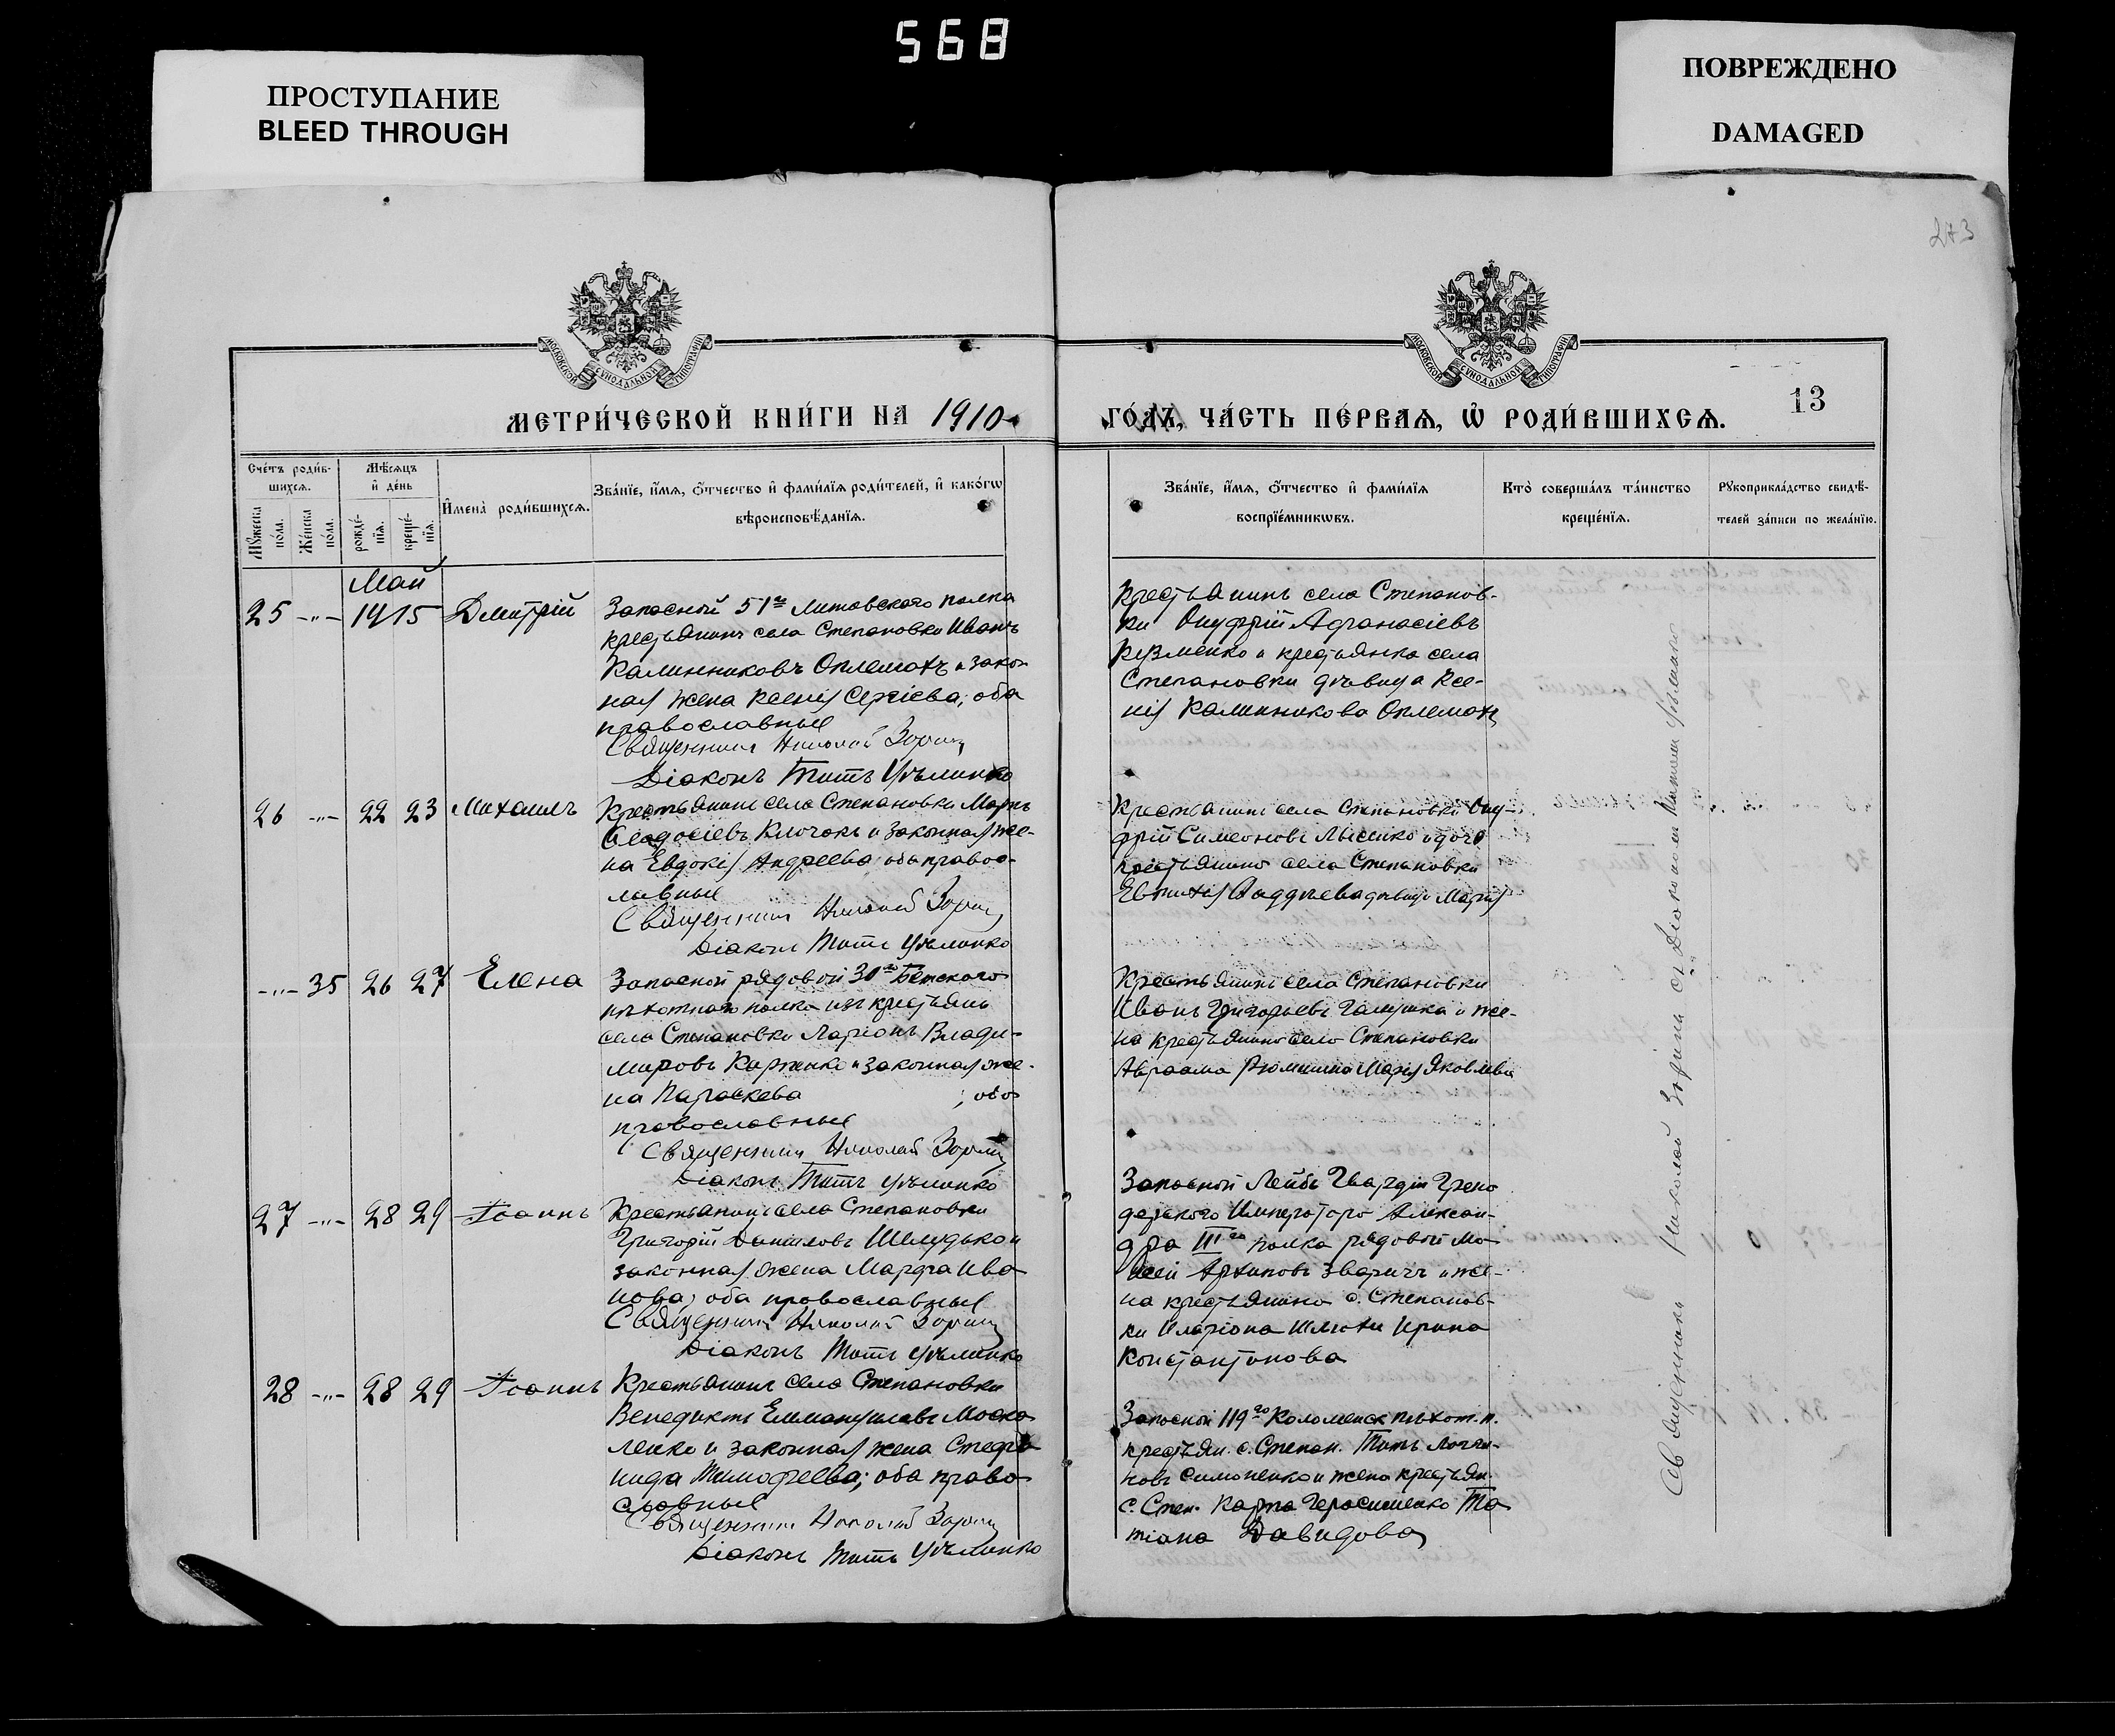 568
ПРОСТУПАНИЕ
BLEED THROUGH
ПОВРЕЖДЕНО
DAMAGED
273
МОСКОВСКОЙ СѴНОДАЛЬНОЙ ТИПОГРАФІИ
МОСКОВСКОЙ СѴНОДАЛЬНОЙ ТИПОГРАФІИ
МЕТРИ́ЧЕСКОЙ КНИ́ГИ НА 1910
ГО́ДЪ, ЧА́СТЬ ПЕ́РВАЯ, Ѡ҆ РОДИ́ВШИХСЯ.
13
Сче́тъ роди́в-
шихся.
Мужеска по́ла.
Же́нска по́ла.
Мѣ́сяцъ
и҆ де́нь
рожде́-
нїя.
креще́-
нїя.
И҆мена̀ роди́вшихся.
Зва́нїе, и҆́мя, ѻ҆́тчество и҆ фами́лїя роди́телей, и҆ како́гѡ
вѣроисповѣ́данїя.
Зва́нїе, и҆́мя, ѻ҆́тчество и҆ фами́лїя
воспрїе́мникѡвъ.
Кто̀ соверша́лъ та́инство
креще́нїя.
Рукоприкла́дство свидѣ́-
телей за́писи по жела́нїю.
Май
25 -"- 14 15 Дмитрій
Запасной 51го Литовскаго полка
крестьянинъ села Степановки Иванъ
Калинниковъ Оплемахъ и закон
ная жена Ксенія Сергіева; оба
православные
Священникъ Николай Зоринъ
Діаконъ Титъ
Крестьянинъ села Степанов-
ки Онуфрій Афанасіевъ
Кузменко и крестьянка села
Степановки дѣвица Ксе-
нія Калинникова Оплемахъ
26 -"- 22 23 Михаилъ
Крестьянинъ села Степановки Маркъ
Ѳеодосіевъ Клочокъ и законная же-
на Евдокія Андреева; оба правос-
лавные
Священникъ Николай Зоринъ
Діаконъ Титъ
Крестьянинъ села Степановки Ону-
фрій Симеоновъ Лысенко и дочь
крестьянина села Степановки
дѣвица Марія
-"- 35 26 27 Елена
Запасной рядовой 30го
пѣхотнаго полка изъ крестьянъ
села Степановки Ларіонъ Влади-
мировъ Карпенко и законная же-
на Параскева ; оба
православные
Священникъ Николай Зоринъ
Діаконъ Титъ
Крестьянинъ села Степановки
Иванъ Григорьевъ Галушка и же-
на крестьянина села Степановки
Авраама Марія Яковлева
27 -"- 28 29 Іоаннъ
Крестьянинъ села Степановки
Григорій Даниловъ Шелудько и
законная жена Марфа Ива
нова; оба православные
Священникъ Николай Зоринъ
Діаконъ Титъ
Запасной Лейбъ Гвардіи Грена
дерскаго Императора Алексан-
дра IIIго полка рядовой Мо
исей Архиповъ Зваричъ и же-
на крестьянина с. Степанов-
ки Иларіона Шлыхи Ирина
Константинова
28 -"- 28 29 Іоаннъ
Крестьянинъ села Степановки
Венедиктъ Еммануиловъ Моска
ленко и законная жена Стефа
нида Тимофеева; оба право
славные
Священникъ Николай Зоринъ
Діаконъ Титъ
Запасной 119го Коломенск. пѣхот. п.
крестьян. с. Степан. Титъ
новъ Симоненко и жена крестьян.
с. Степ. Карпа Герасименко Та
тіана Давидова
Священникъ Николай Зоринъ съ Діакономъ Титомъ